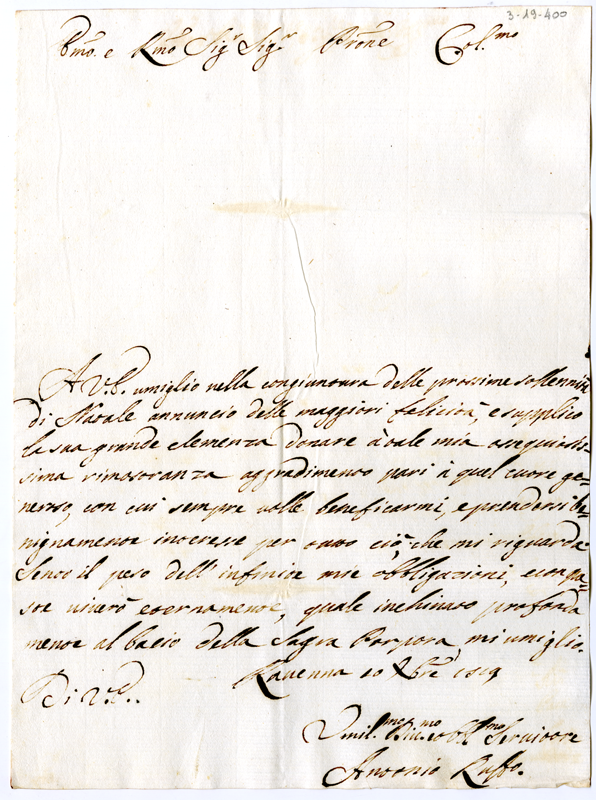 3-19-400
Em̃o. e Rmõ Sigr Sigr Prõne Col.mo
A V.E. umiglio nella congiuntura delle prossime sollennità
di Natale annuncio delle maggiori felicità, e supplico
la sua grande clemenza donare à tale mia ossequiosis=
sima rimostranza aggradimento pari à quel cuore ge=
neroso, con cui sempre volle beneficarmi, e prendersi be=
nignamente interesse per tutto ciò, che mi riguarda
Sento il peso dell' infinite mie obbligazioni, e con
vivero eternamente, quale inchinato profonda
mente al bacio della Sagra Porpora, mi umiglio.
Ravenna 10 Xbre
Di V.E.
Umil.mo Div.mo et Obl.mo Servitore
Antonio Ruffo.